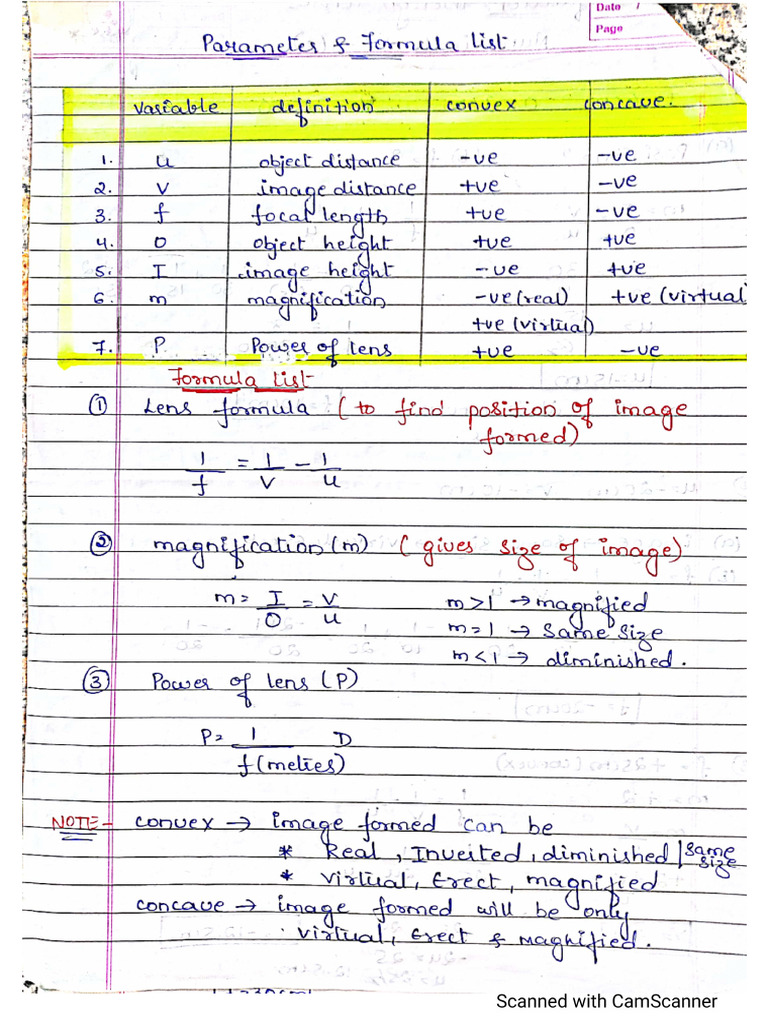 Date /
Page
Parameter & Formula list
variable definition convex concave.
1. u object distance -ve -ve
2. v image distance +ve -ve
3. f focal length +ve -ve
4. O object height +ve +ve
5. I image height -ve +ve
6. m magnification -ve (real) +ve (virtual
+ve (virtual)
7. P. Power of lens +ve -ve
Formula list
① Lens formula (to find position of image
formed)
1/f = 1/v - 1/u
② magnification (m) (gives size of image)
m = I/O = v/u m>1 → magnified
m=1 → same size
m<1 → diminished.
③ Power of lens (P)
P = 1/f(metres) D
NOTE - convex → image formed can be
* Real, Inverted, diminished | same size
* virtual, Erect, magnified
concave → image formed will be only
virtual, Erect & Magnified.
Scanned with CamScanner